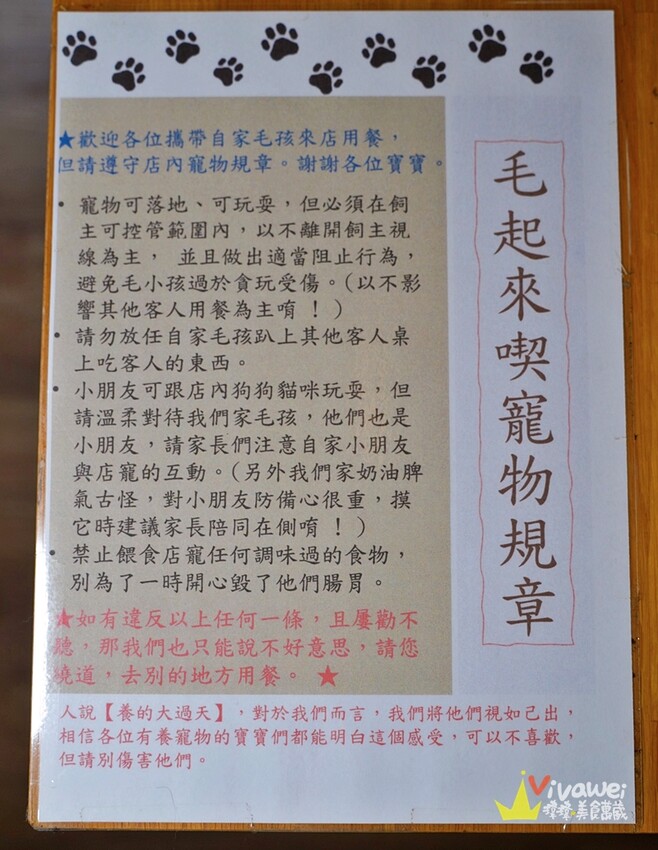 毛起來喫寵物規章
★歡迎各位攜帶自家毛孩來店用餐，
但請遵守店內寵物規章。謝謝各位寶寶。
• 寵物可落地、可玩耍，但必須在飼
主可控管範圍內，以不離開飼主視
線為主， 並且做出適當阻止行為，
避免毛小孩過於貪玩受傷。(以不影
響其他客人用餐為主唷 ! )
• 請勿放任自家毛孩趴上其他客人桌
上吃客人的東西。
• 小朋友可跟店內狗狗貓咪玩耍，但
請溫柔對待我們家毛孩，他們也是
小朋友，請家長們注意自家小朋友
與店寵的互動。(另外我們家奶油脾
氣古怪，對小朋友防備心很重，摸
它時建議家長陪同在側唷 ! )
• 禁止餵食店寵任何調味過的食物，
別為了一時開心毀了他們腸胃。
★如有違反以上任何一條，且屢勸不
聽，那我們也只能說不好意思，請您
繞道，去別的地方用餐。 ★
人說【養的大過天】，對於我們而言，我們將他們視如己出，
相信各位有養寵物的寶寶們都能明白這個感受，可以不喜歡，
但請別傷害他們。
Vivawei